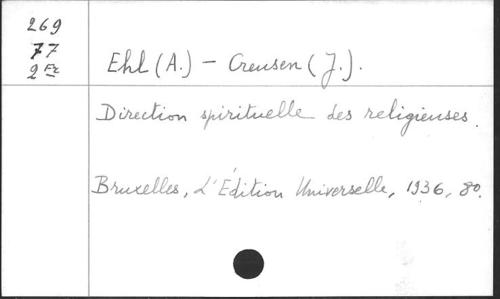 269
77
2 Ex
Ehl (A.) - Creusen (J.).
Direction spirituelle des religieuses.
Bruxelles, L'Édition Universelle, 1936, 8o.